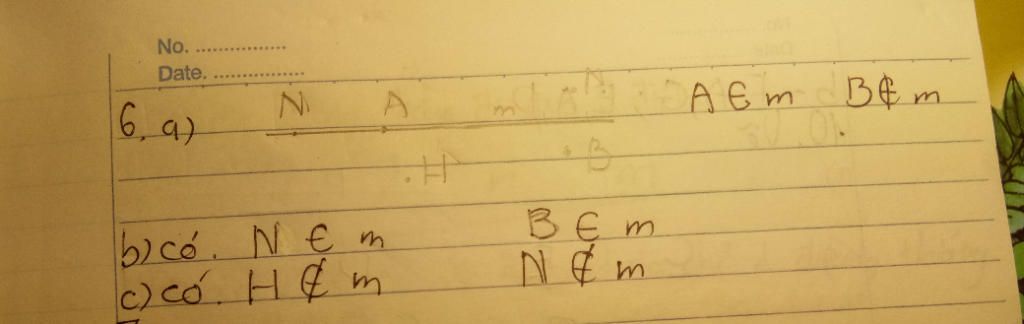 No. ................
Date. ................
6, a) N A m N A ∈ m B ∉ m
H B
b) có. N ∈ m B ∈ m
c) có. H ∉ m N ∉ m